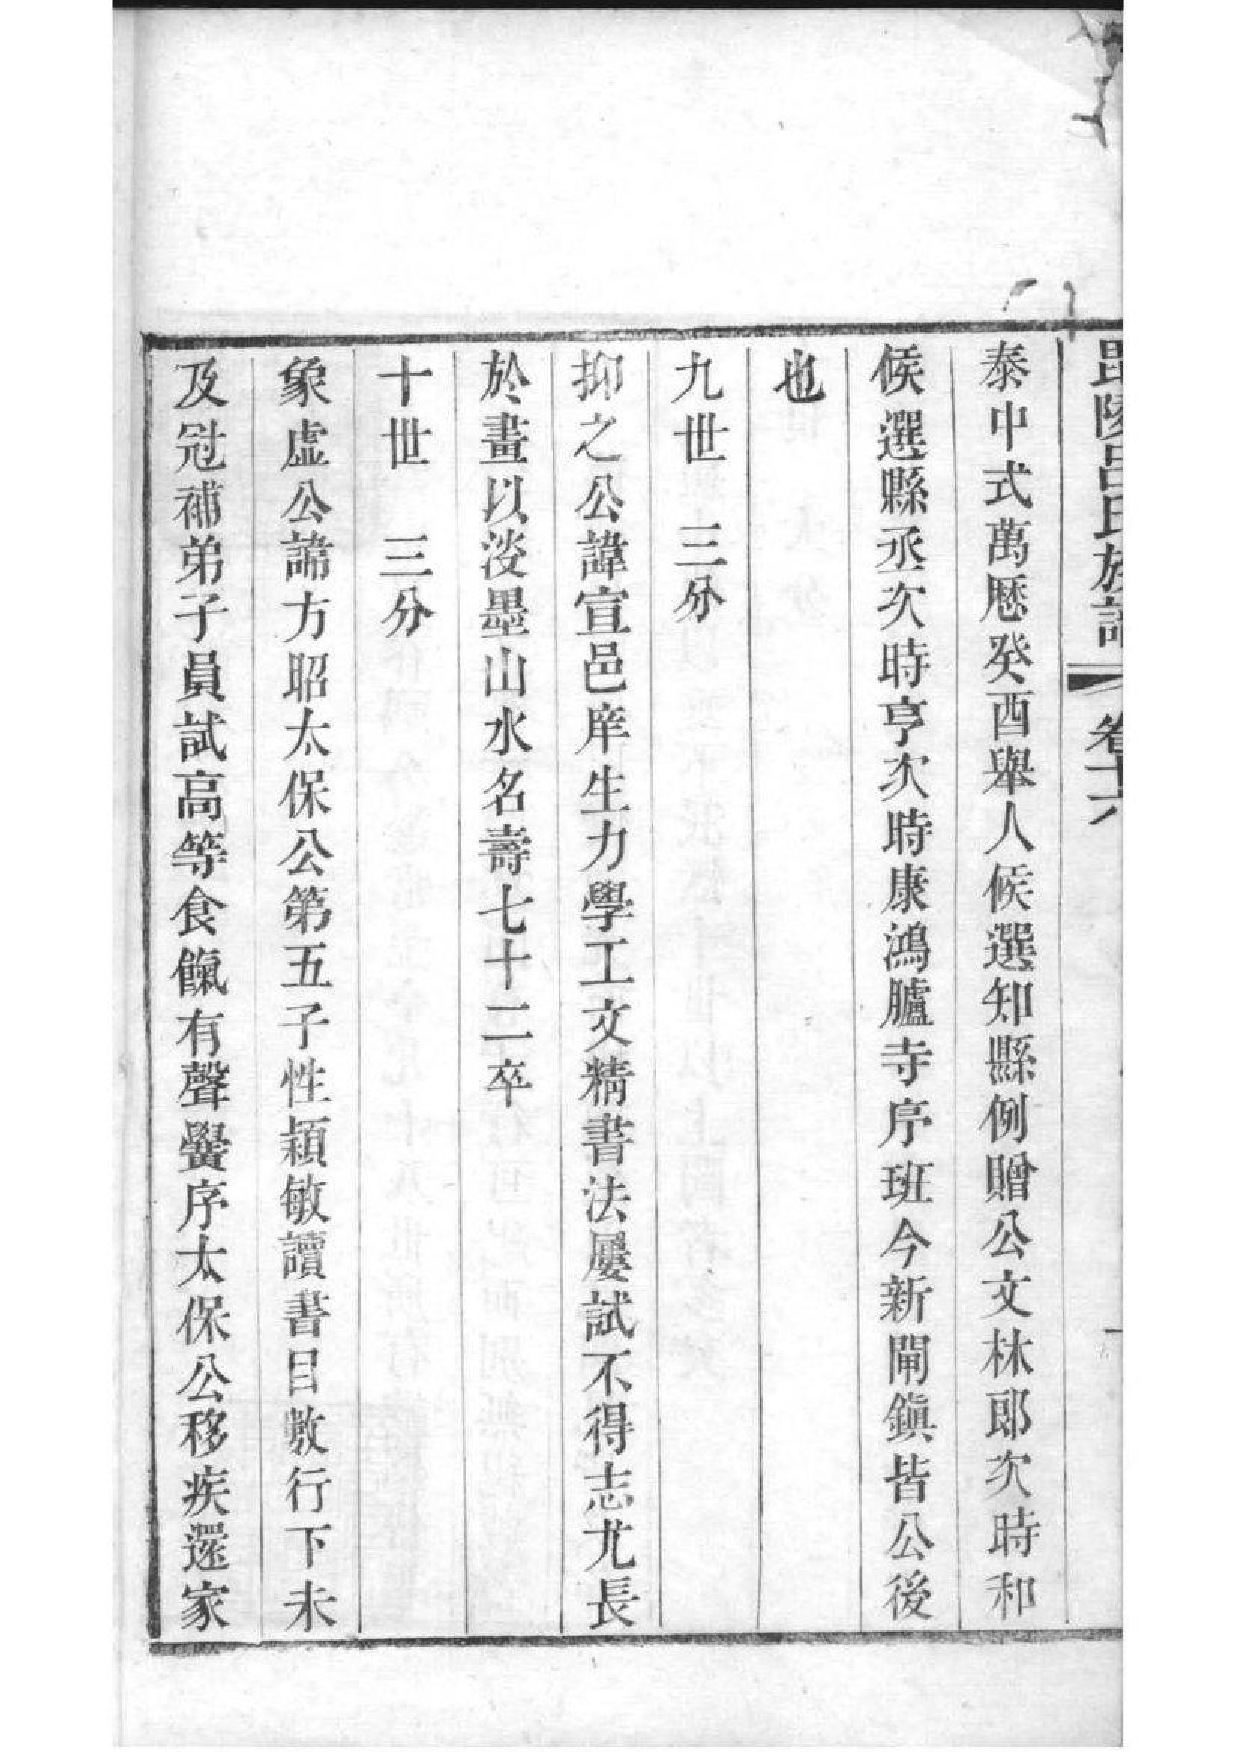 毘陵呂氏族譜 卷十六
泰中式萬厯癸酉舉人候選知縣例贈公文林郎次時和
候選縣丞次時亨次時康鴻臚寺序班今新閘鎮皆公後
也
九世 三分
抑之公諱宣邑庠生力學工文精書法屢試不得志尤長
於畫以淡墨山水名壽七十二卒
十世 三分
象虛公諱方昭太保公第五子性穎敏讀書目數行下未
及冠補弟子員試高等食餼有聲黌序太保公移疾還家